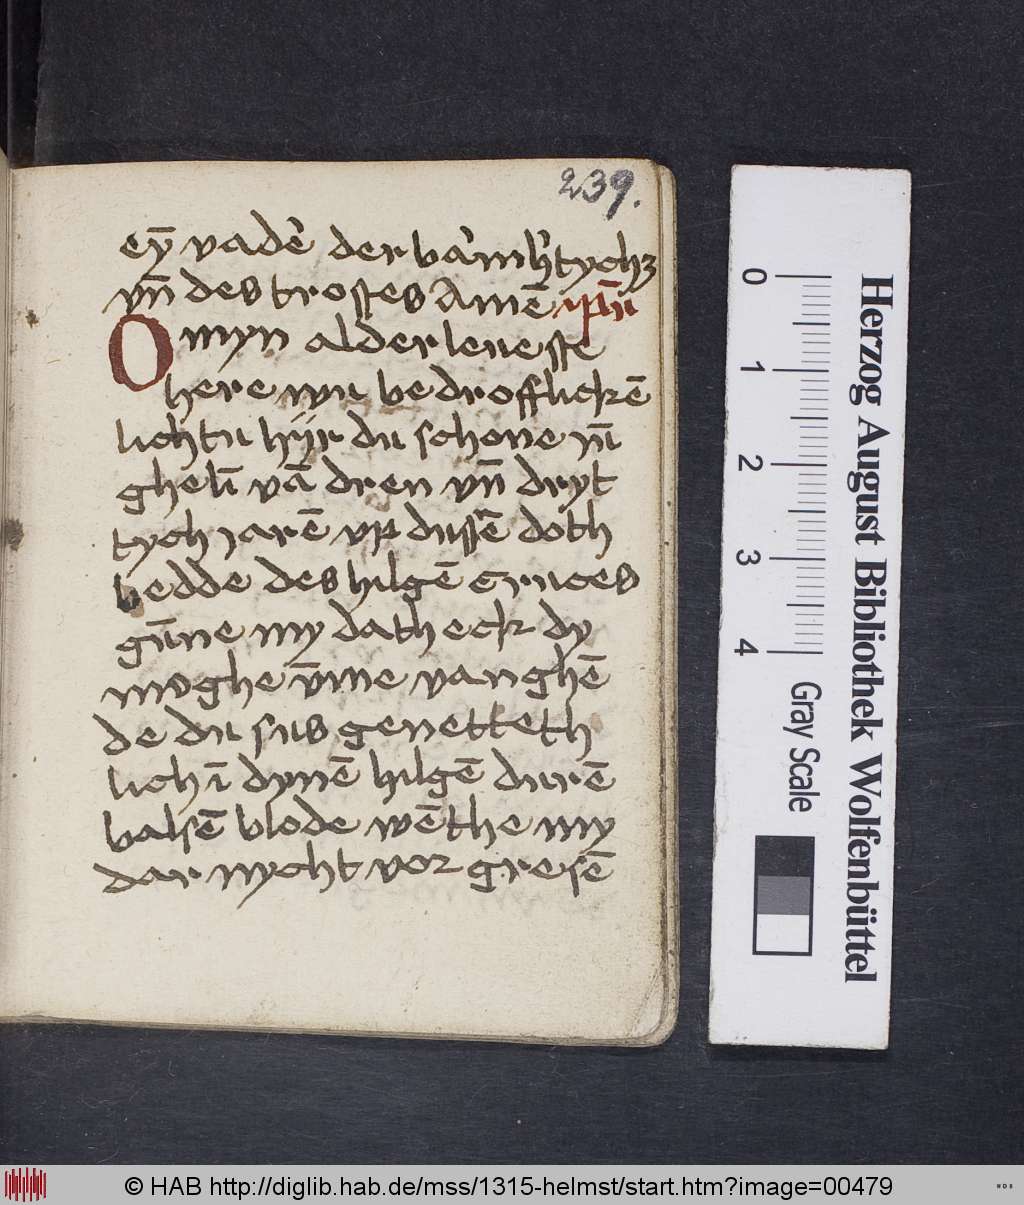 239.
eȳ vade͛ der ba͛mh͛tychꝫ
vn̄ des trostes Amē
O myn alderleueste
here myn bedrofflickē
licht
du schone
dren vn̄ dryt
tych iarē vp dussē doth
bedde des hilgē cruces
gūne my dath eck dy
moghe v̄me vanghē
de du sus genetteth
lich ī dynē hilgē durē
balsē blode wēthe my
dar nycht vor gresē
Herzog August Bibliothek Wolfenbüttel
0 1 2 3 4 Gray Scale
© HAB http://diglib.hab.de/mss/1315-helmst/start.htm?image=00479